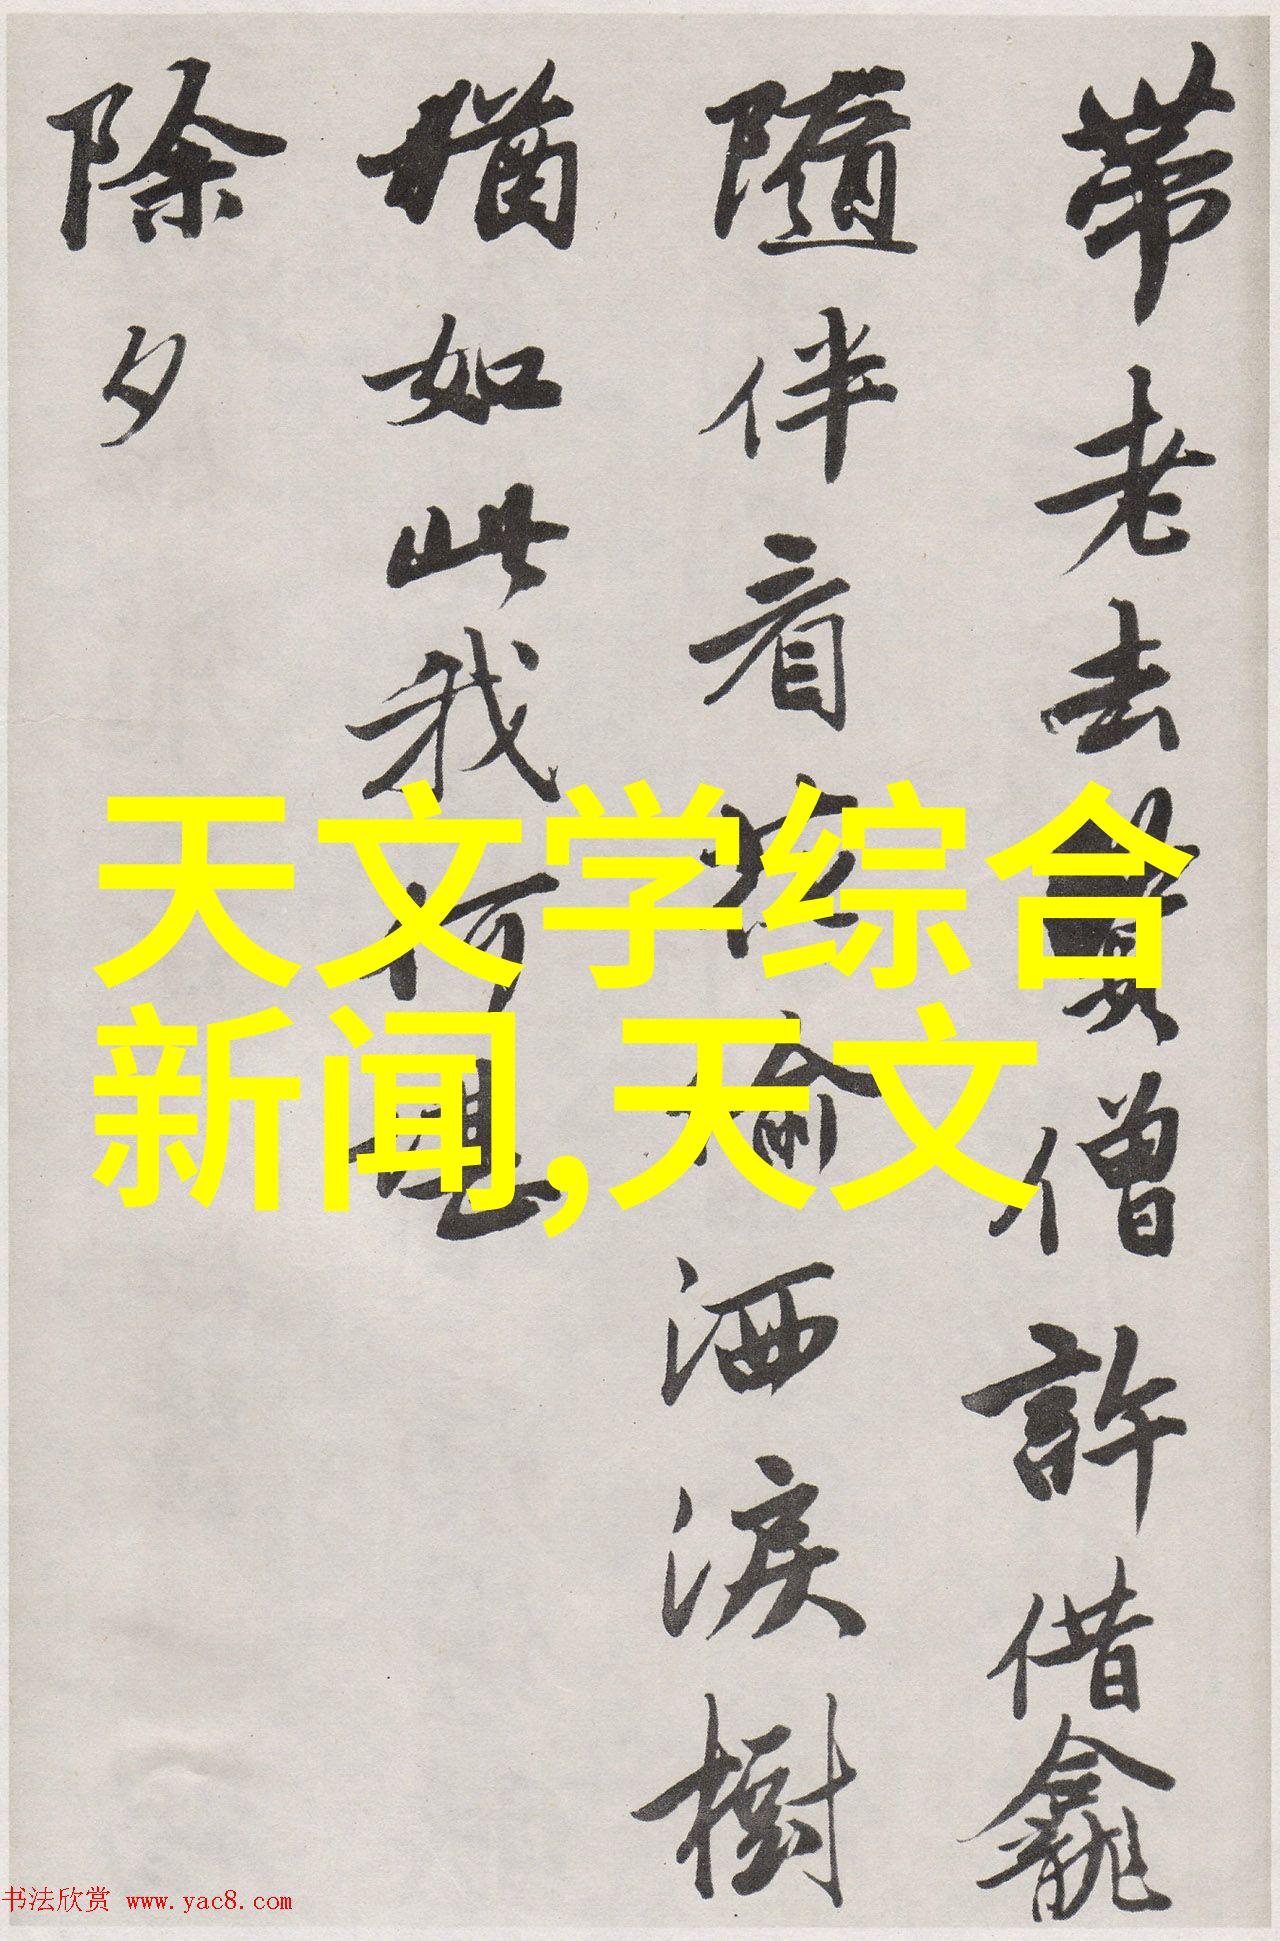 帶老去僧許借龕
隨伴看洒淚樹
猶如此我何堪
除夕
天文学综合
新闻,天文
书法欣赏 www.yac8.com